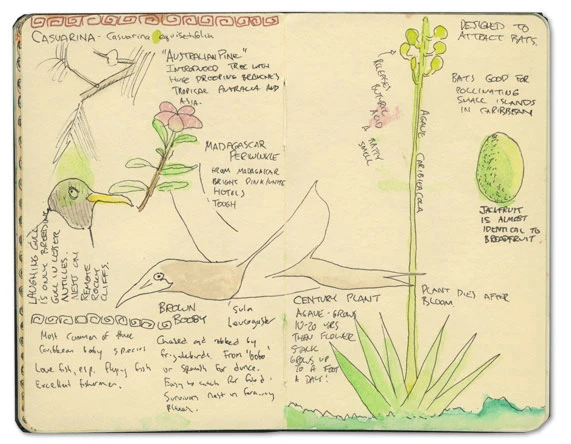 CASUARINA - Casuarina equisetifolia
"AUSTRALIAN PINE"
INTRODUCED TREE WITH
HUGE DROOPING BRANCHES
TROPICAL AUSTRALIA AND
ASIA.
MADAGASCAR
PERIWINKLE
FROM MADAGASCAR
BRIGHT PINK/WHITE
HOTELS
TOUGH
LAUGHING GULL
IS ONLY BREEDING
GULL IN LESSER
ANTILLES.
NEST ON
REMOTE
ROCKY
CLIFFS.
BROWN
BOOBY
Sula
Leucogaster
Most common of three
Caribbean booby species
Love fish, esp. flying fish
Excellent fishermen.
Chased and robbed by
frigatebirds. From 'bobo'
or Spanish for dunce.
Easy to catch for food.
Survivors nest in
places.
DESIGNED TO
ATTRACT BATS.
RELEASES
BUTYRIC
ACID
A BATTY
SMELL
BATS GOOD FOR
POLLINATING
SMALL ISLANDS
IN CARIBBEAN
AGAVE CARIBAEICOLA
JACKFRUIT
IS ALMOST
IDENTICAL TO
BREADFRUIT.
PLANT DIES AFTER
BLOOM.
CENTURY PLANT
AGAVE - GROWS
10-20 YRS
THEN FLOWER
STALK
GROWS UP
TO A FOOT
A DAY!